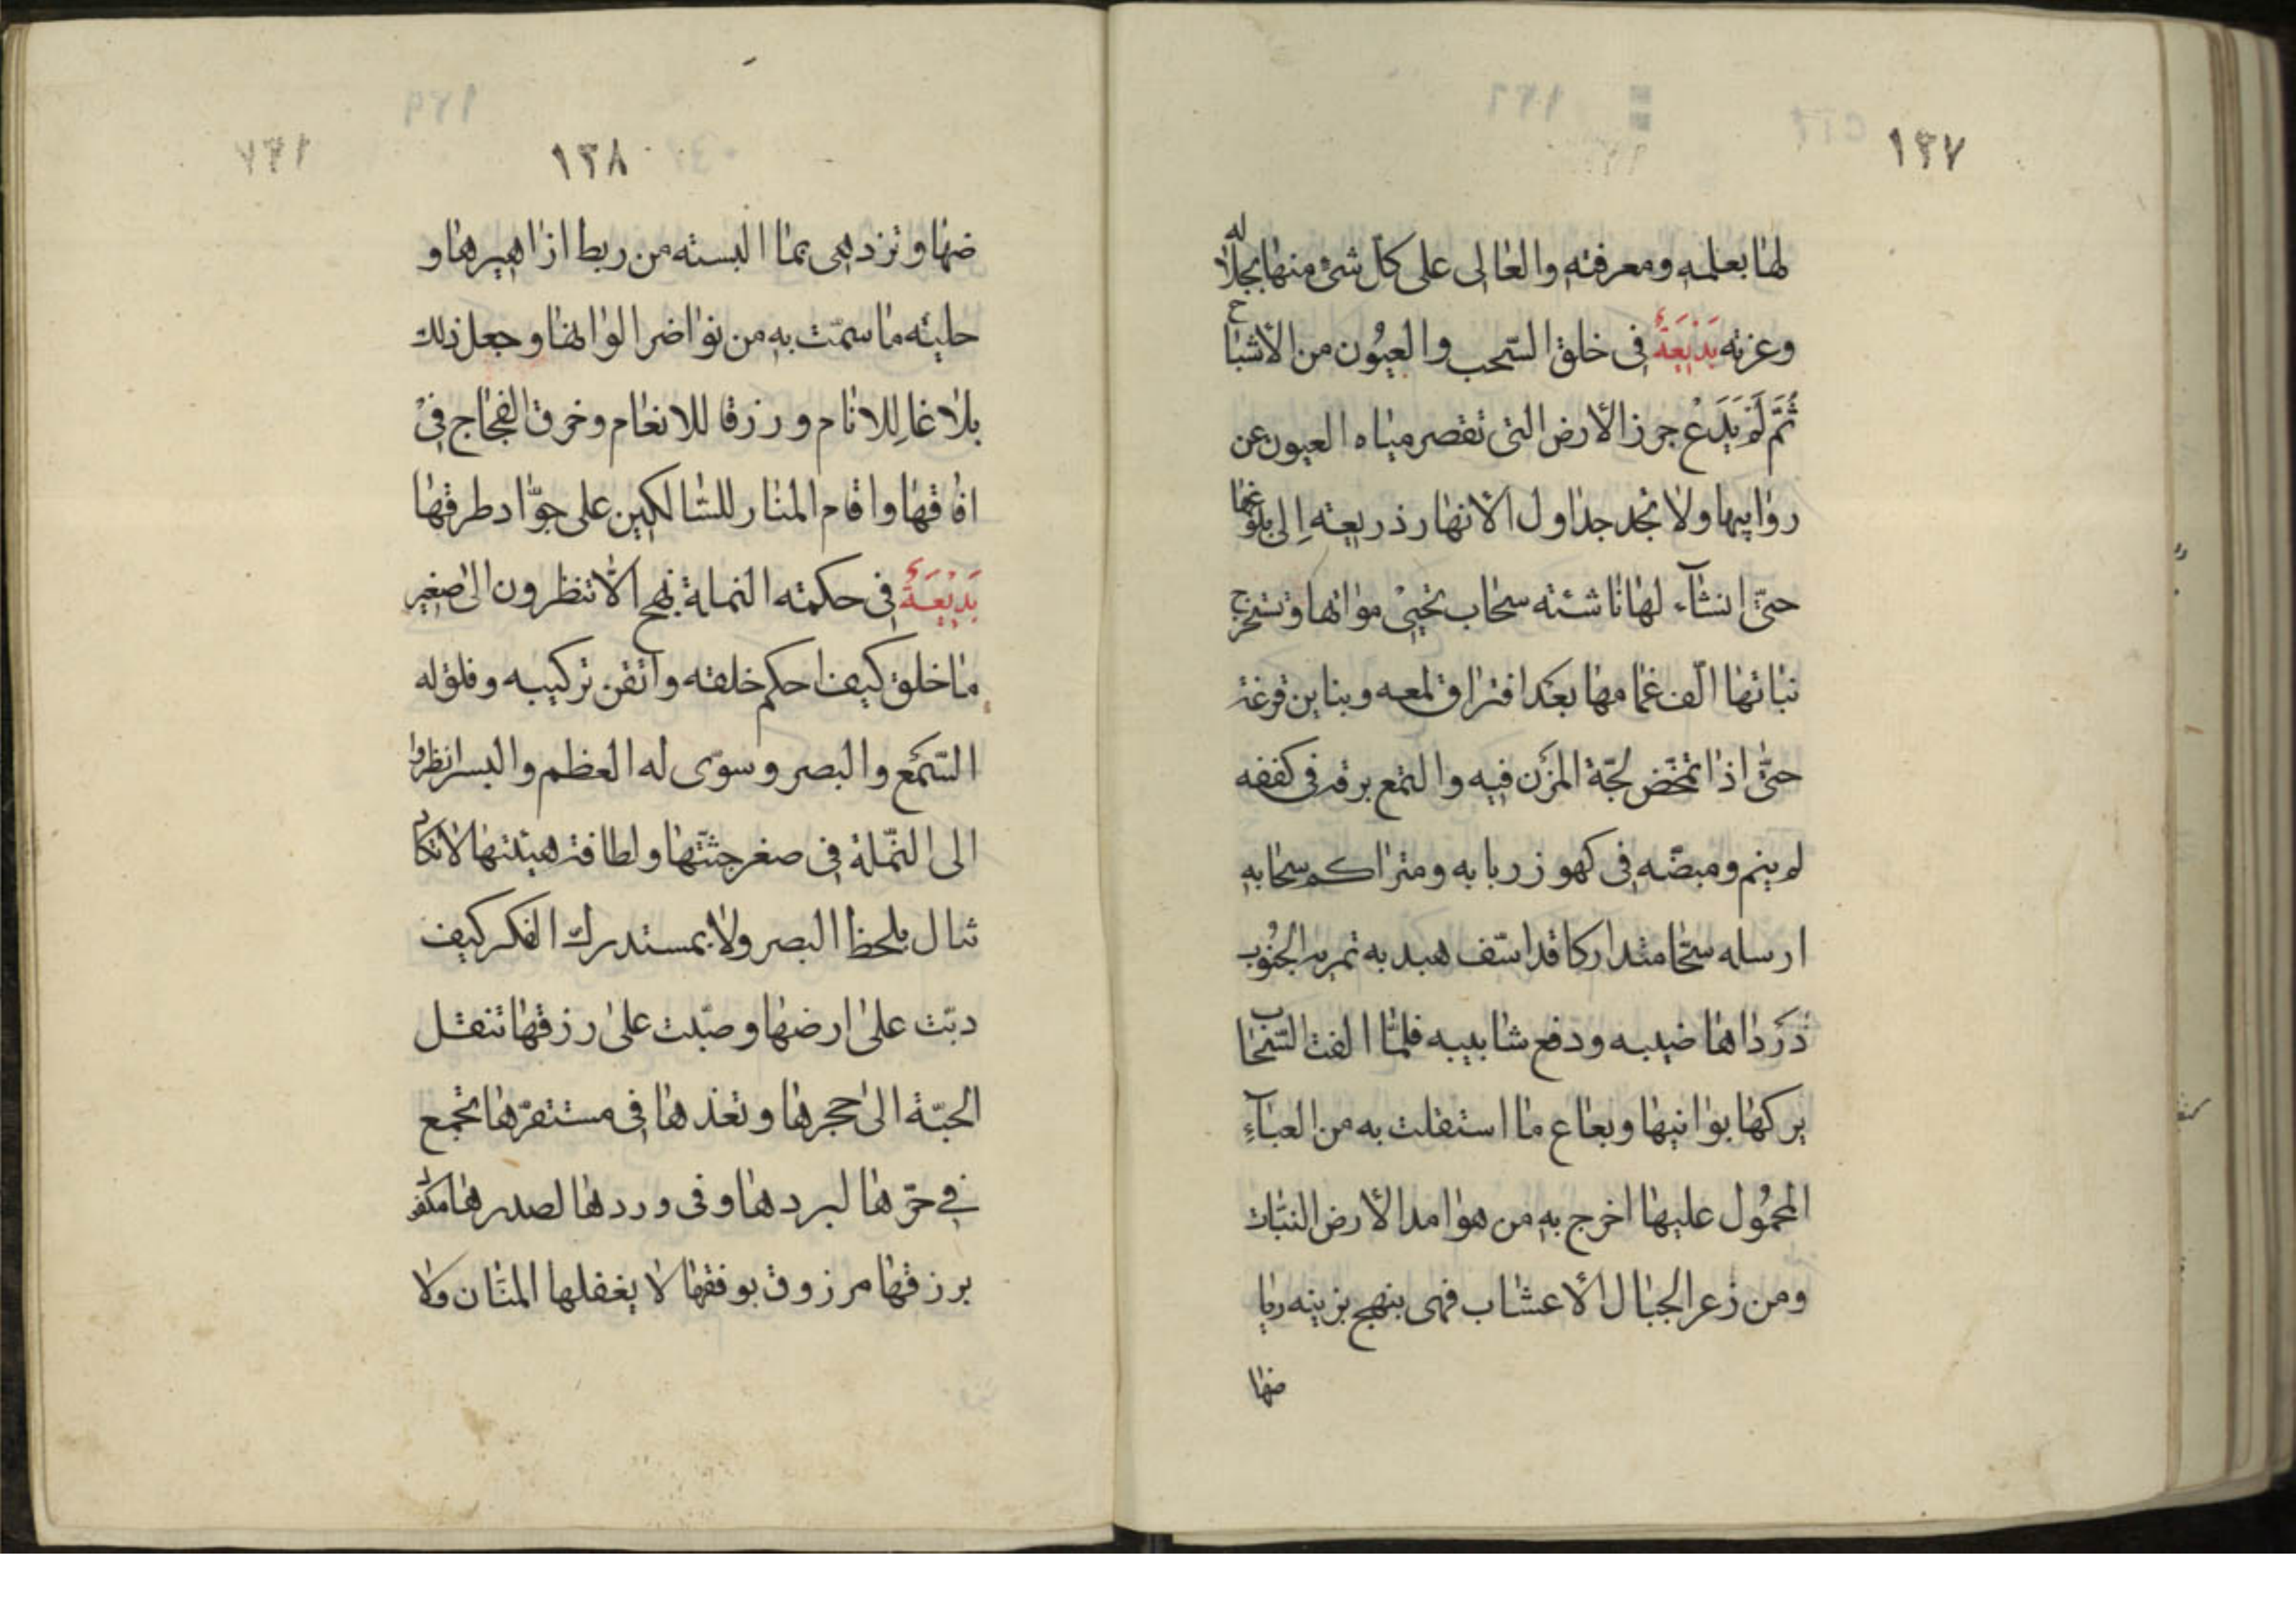 ١٣٧
لها بعلمه ومعرفته والعالى على كلّ شئ منها بجلاله
وعزته بَدْيعَةٌ فى خلق السّحب والعيُون من الأشباح
ثُمَّ لَمْ يَدَعْ جرز الأرض التى تقصر مياه العيون عن
روابيها ولا تجد جداول الأنهار ذريعته اِلى بلوغها
حتّى انشآء لها ناشئته سحاب تحيىْ مواتها وتستخرج
نباتها الّف غمامها بعَد افتراق لمعه وبناين قزعته
حتّى اذا تمخّض لجّة المزَن فيه والتمع برقه فى كففه
لم ينم ومبضّه فى كهوز ربابه ومتراكم سحابه
ارسله سحّا متداركا قد اسّف هيدبه تمريه الجنُوب
دَرَدَاهاضيبه ودفع شابيبه فلمّا القت السّحاب
بركها بوانيها وبعاع ما استقلت به من العبآءِ
المحمُول عليها اخرج به من هوامد الأرض النبّات
ومن زعر الجبال الأعشاب فهى بنهج بزينه ريا
ضها
١٣٨
ضها وتزدهى بما البسته من ربط ازاهيرها و
حليته ما سمّت به من نواضر الوانها وجعل ذلك
بلاغا لِلانام ورزقا للانعام وخرق الفجاج فىْ
افاقها واقام المنار للسّالكين على جوّاد طرقها
بَدْيعَةٌ فى حكمته النملة نهج الاّ تنظرون الى صغير
ما خلق كيف احكم خلقته واتقن تركيبه وفلق له
السّمَع والبصر وسوّى له العظم والبسر انظروا
الى النّملة فى صغر جثّتها ولطافته هيئتها لا تكاد
تنال بلحظ البصر ولا بمستدرك الفكر كيف
دبّت على ارضها وصبّت على رزقها تنقل
الحبّة الى حجرها وتعذها فى مستقرّها تجمع
في حرّها لبردها وفى وردها لصدرها مكفول
برزقها مرزوق بوفقها لا يغفلها المنّان ولا